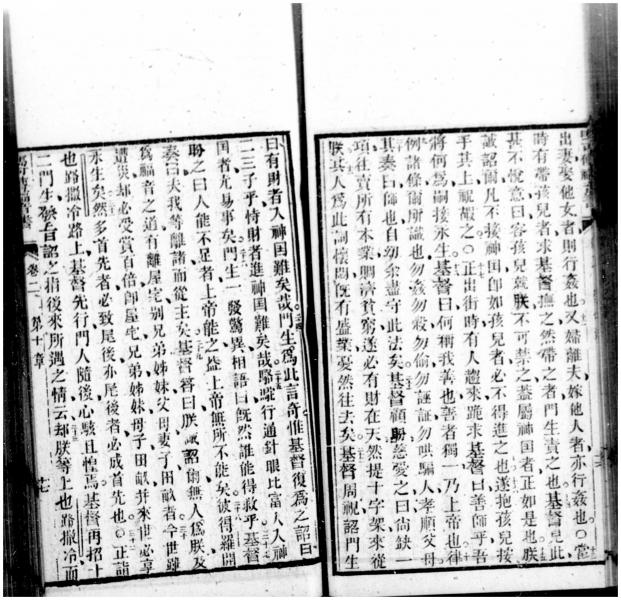 出妻娶他女者則行姦也又婦離夫嫁他人者亦行姦也○當
時有帶孩兒者求基督撫之然帶之者門生責之也基督見此
甚不悅意曰容孩兒就朕不可禁之蓋屬神國者正如是也朕
誠詔爾凡不接神国卽如孩兒者必不得進之也遂抱孩兒按
手其上祝嘏之○正出街時有人趨來跪求基督曰善師乎吾
將何爲嗣接永生基督曰何稱我善也善者獨一乃上帝也律
例諸條爾所識也勿姦勿殺勿偷勿誣証勿哄騙人孝順父母
其奏曰師也自幼余盡守此法矣基督顧盼慈愛之曰尚缺一
項往賣所有本業賙濟貧窮遂必有財在天然提十字架來從
朕其人爲此詞懷悶旣有盛業憂然往去矣基督周視詔門生
曰有財者入神国難矣哉門生爲此言奇惟基督復爲之詔曰
二三子乎恃財者進神国難矣哉駱駝行通針眼比富人入神
国者尤易事矣門生一發驚異相語曰旣然誰能得救乎基督
盼之曰人能不足者上帝能之蓋上帝無所不能矣彼得羅開
奏曰夫我等離諸而從主矣基督答曰朕誠詔爾無人爲朕及
爲福音之道有離屋宅別兄弟姊妹父母妻子田畝者今世雖
遭災却必受賞百倍卽屋宅兄弟姊妹母子田畝幷來世必享
永生矣然多首先者必致尾後亦尾後者必成首先也○正詣
也路撒冷路上基督先行門人隨後心駭且怕焉基督再招十
二門生發言詔之指後來所遇之情云却朕等上也路撒冷而
卷二 第十章 十七